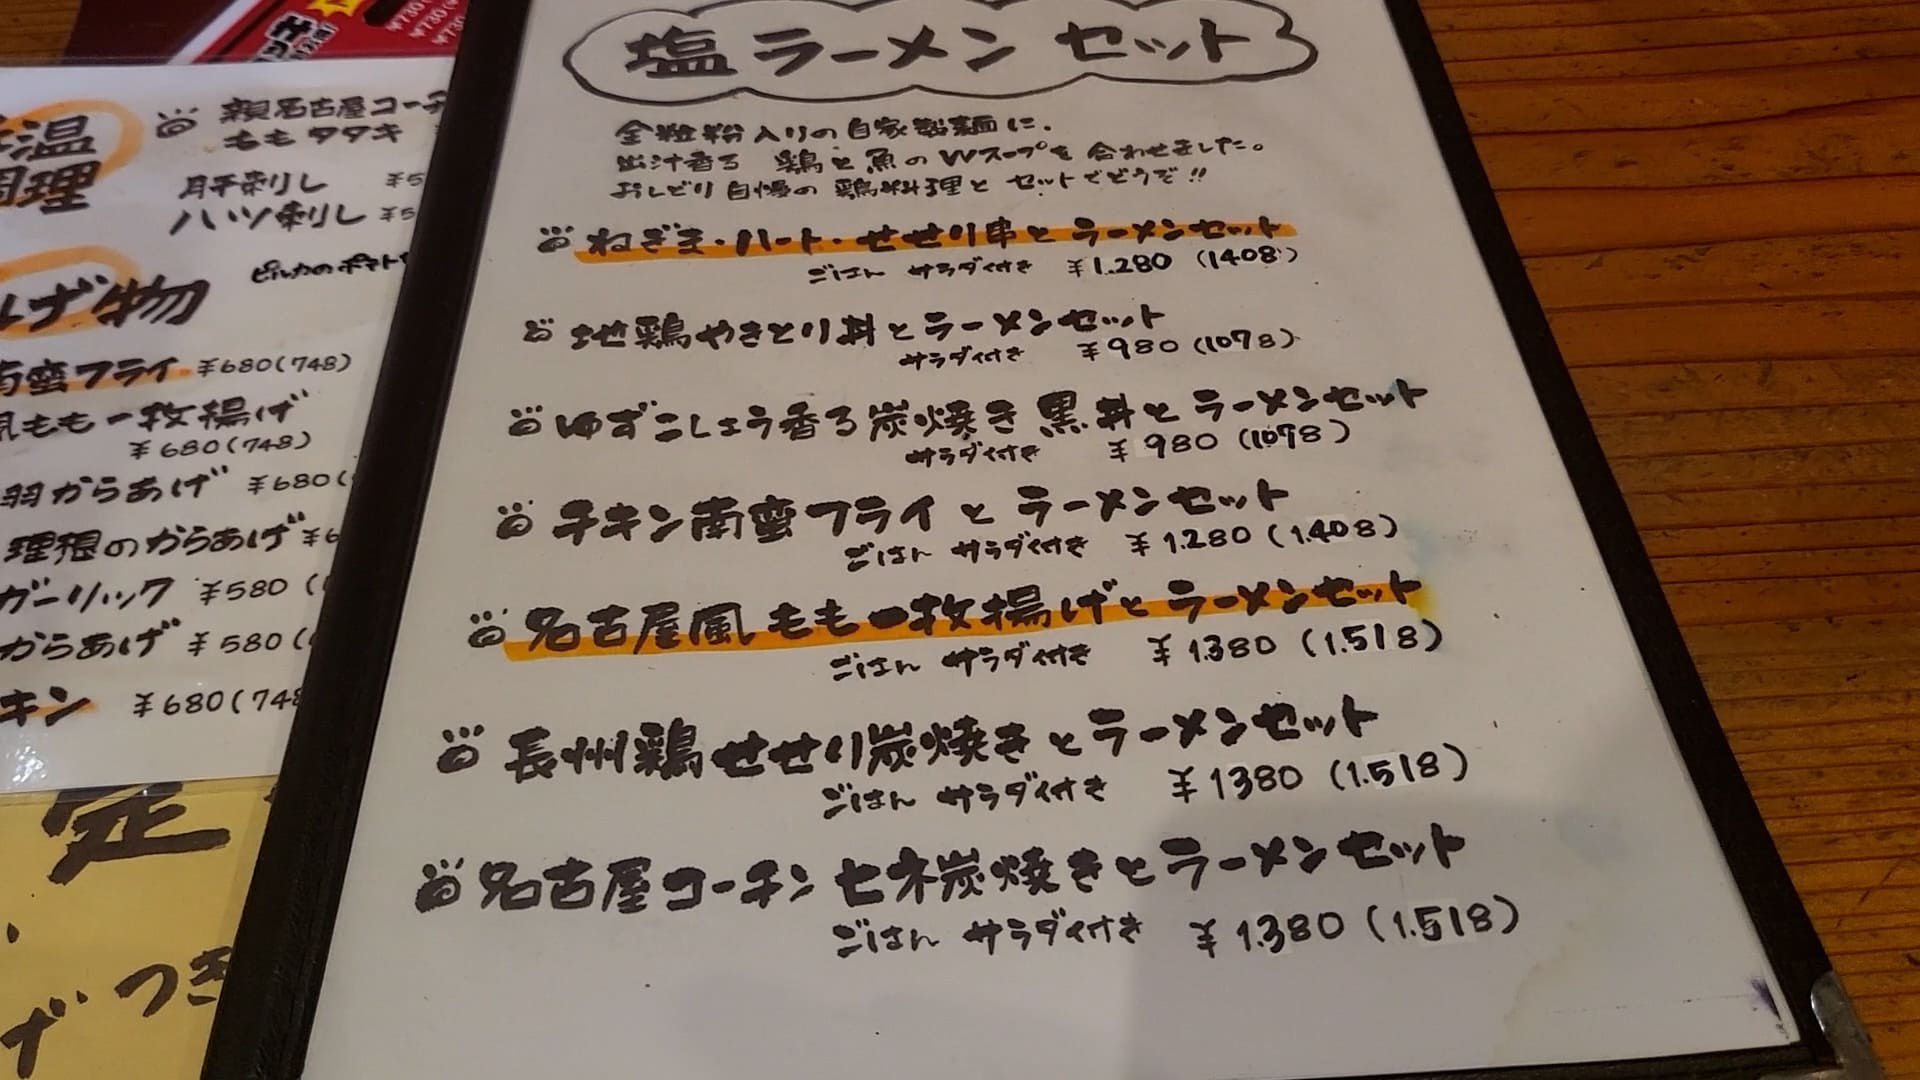 塩ラーメンセット
全粒粉入りの自家製麺に、
出汁香る 鶏と魚のWスープを合わせました。
おしどり自慢の鶏料理とセットでどうぞ!!
ねぎま・ハート・せせり串とラーメンセット
ごはん サラダ付き ¥1.280 (1408)
地鶏やきとり丼とラーメンセット
サラダ付き ¥980 (1078)
ゆずこしょう香る炭焼き黒丼とラーメンセット
サラダ付き ¥980 (1078)
チキン南蛮フライとラーメンセット
ごはん サラダ付き ¥1.280 (1.408)
名古屋風もも一枚揚げとラーメンセット
ごはん サラダ付き ¥1380 (1.518)
長州鶏せせり炭焼きとラーメンセット
ごはん サラダ付き ¥1380 (1.518)
名古屋コーチンセネ炭焼きとラーメンセット
ごはん サラダ付き ¥1.380 (1.518)
温
理
親名古屋コーチ
ももタタキ
肝刺し ¥5
ハツ刺し ¥5
げ物
ピルカのポテト
南蛮フライ ¥680(748)
風もも一枚揚げ
¥680(748)
羽からあげ ¥680(
理想のからあげ ¥6
ガーリック ¥580 (
からあげ ¥580 (
キン ¥680(748
定
つき
げ
¥730
¥730
¥730